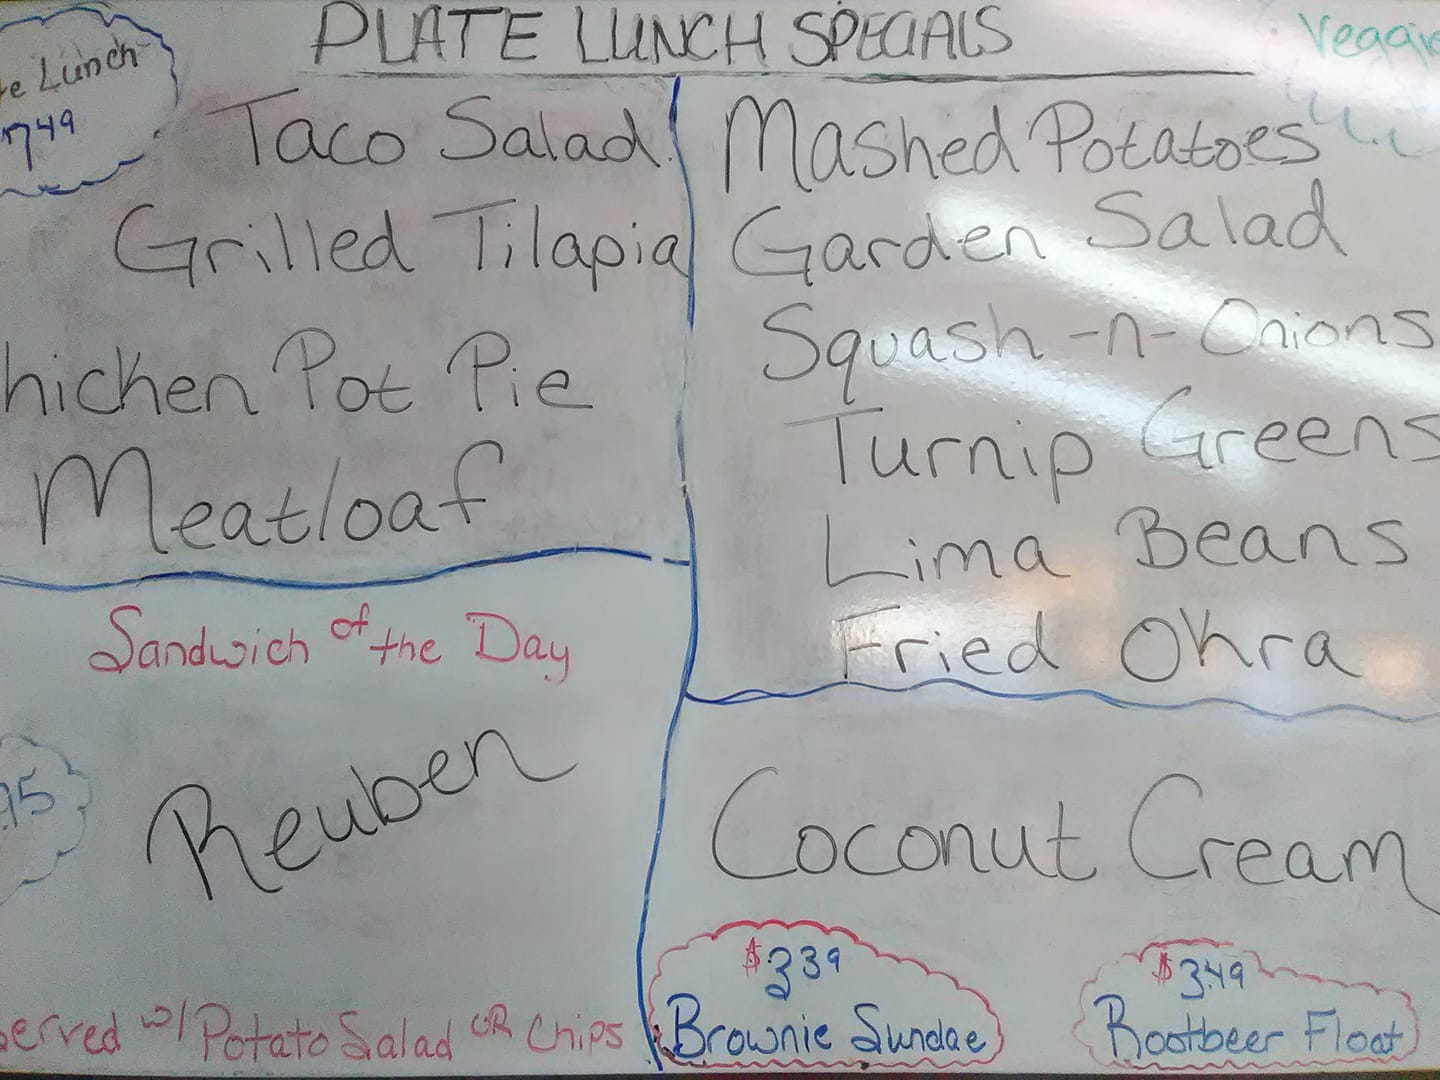 PLATE LUNCH SPECIALS
Lunch
7 49
Taco Salad
Grilled Tilapia
hicken Pot Pie
Meatloaf
Veggie
Mashed Potatoes
Garden Salad
Squash -n- Onions
Turnip Greens
Lima Beans
Fried Okra
Sandwich of the Day
.95
Reuben
served w/ Potato Salad OR Chips
Coconut Cream
$3 39
Brownie Sundae
$3.49
Rootbeer Float